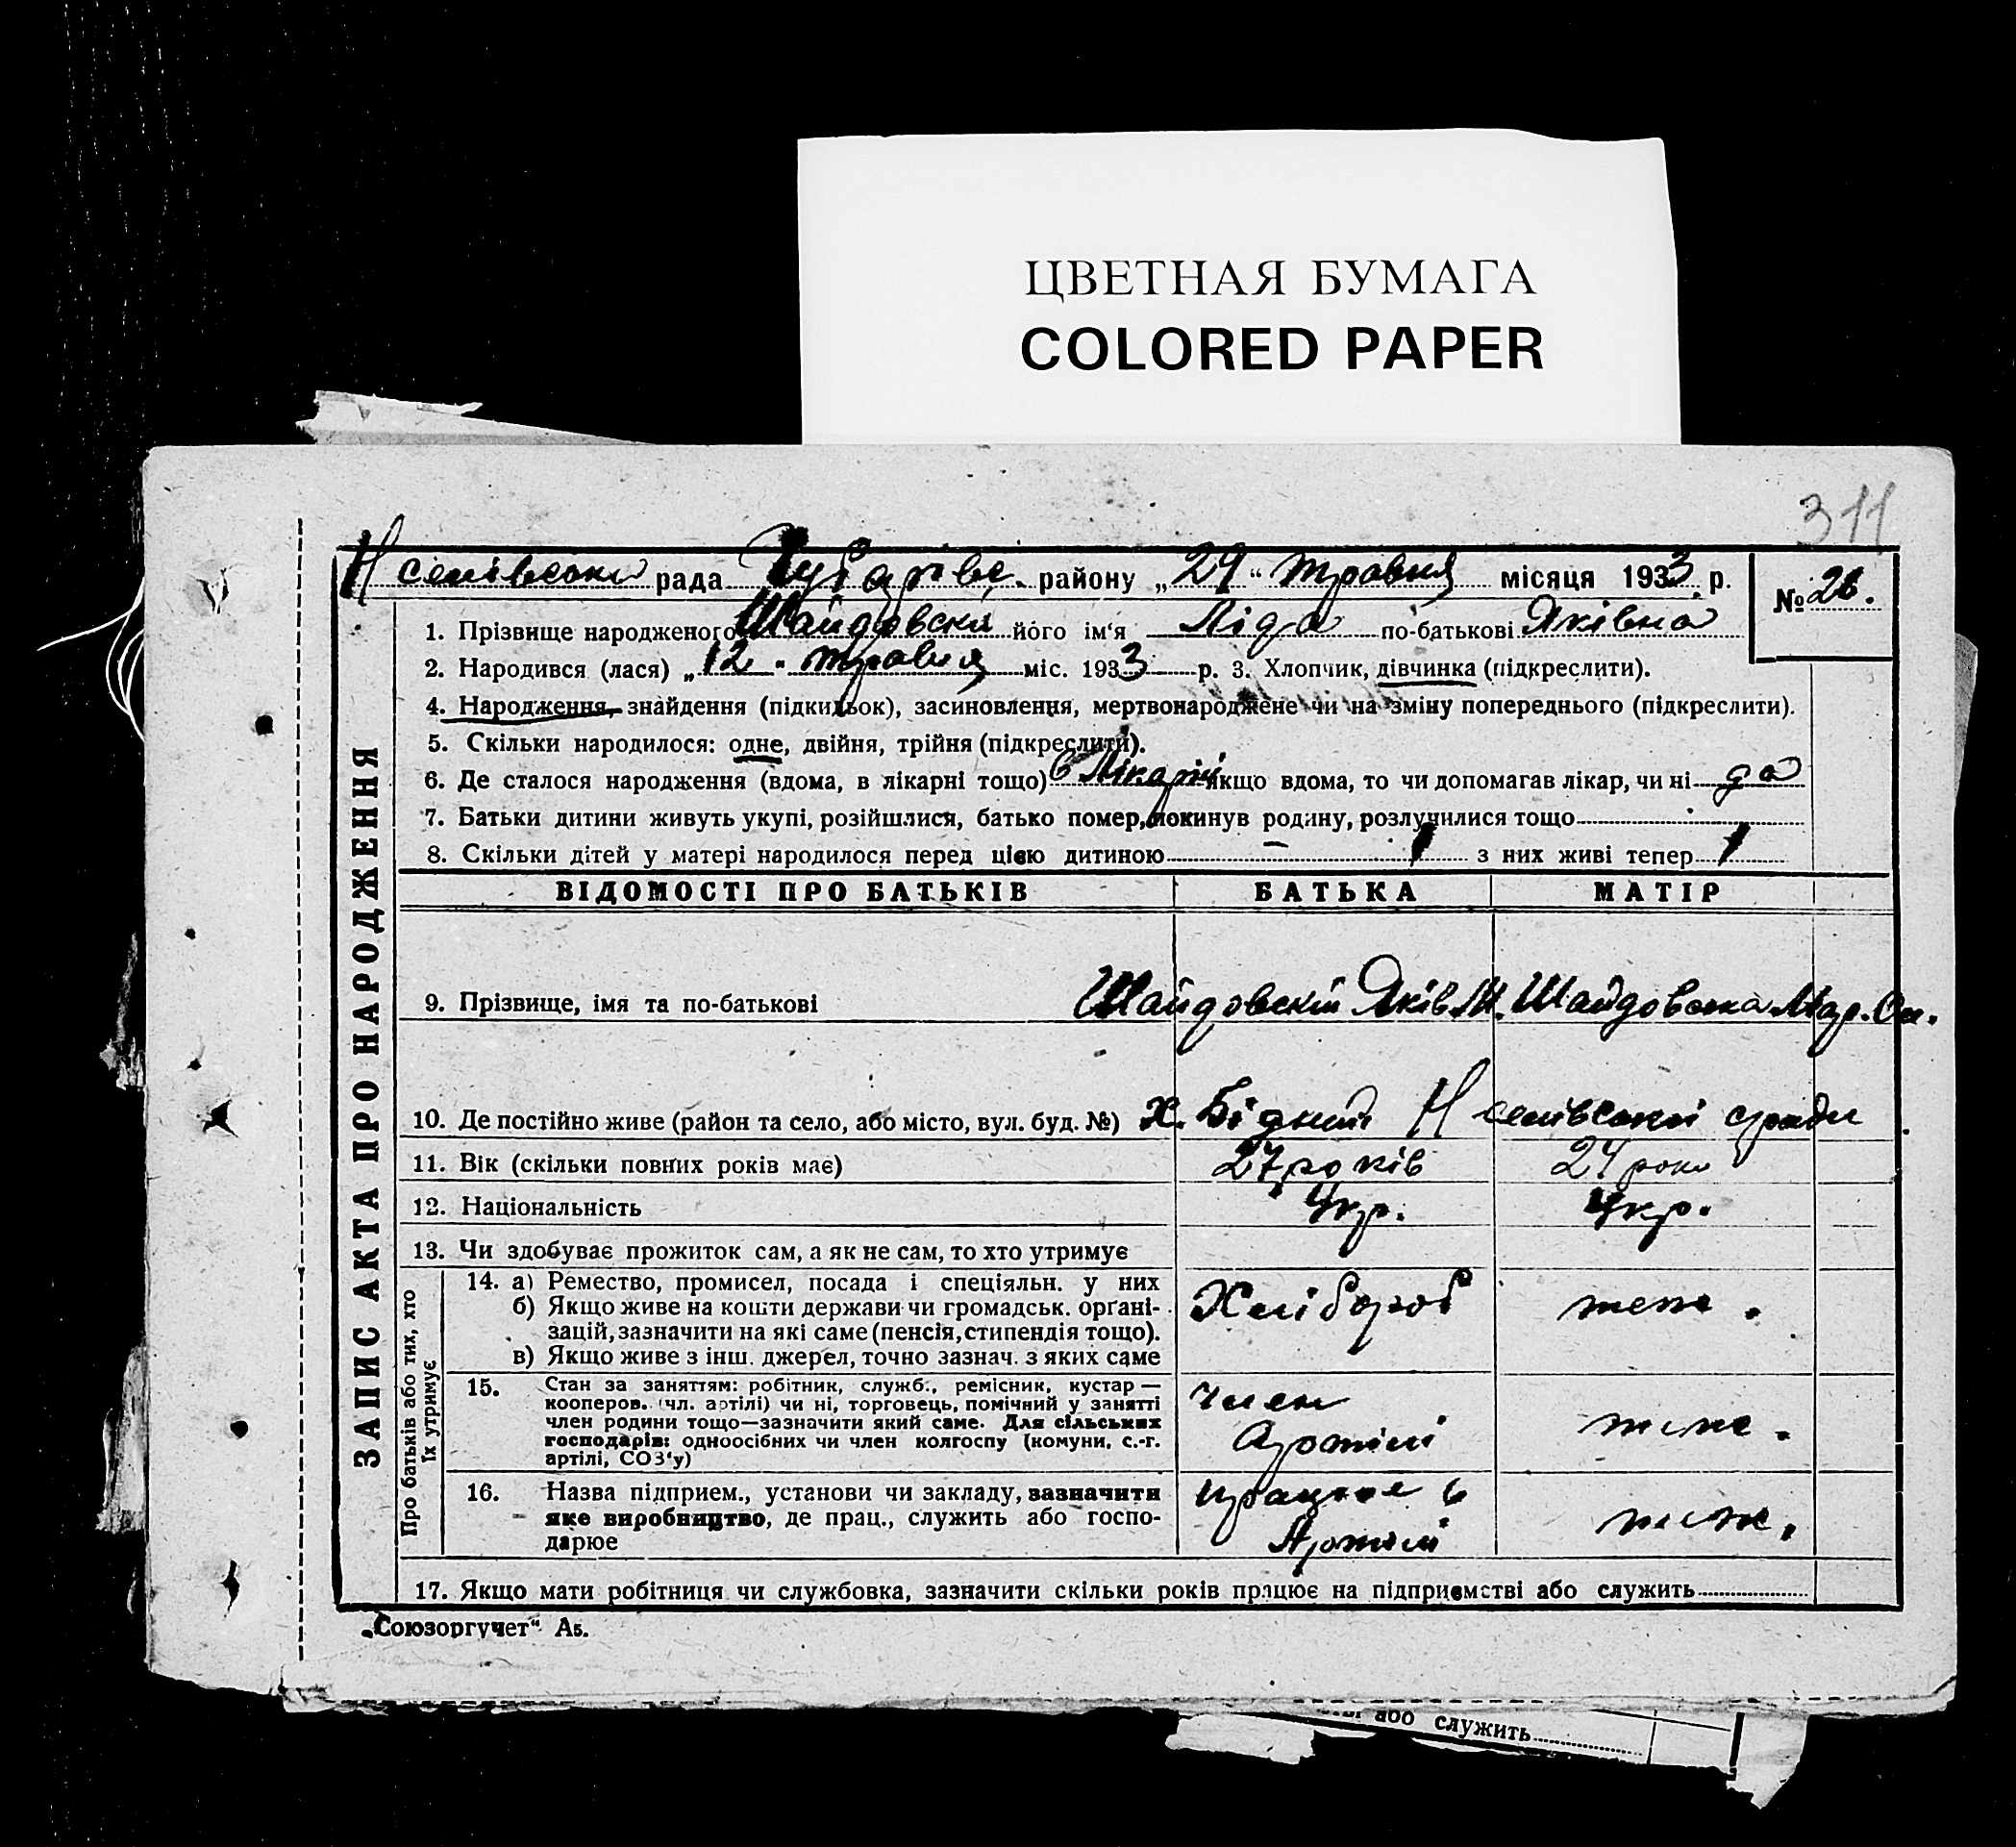 ЦВЕТНАЯ БУМАГА
COLORED PAPER
311
рада района району „24“ травня місяця 1933 р.
№ 26.
1. Прізвище народженого Шайдовска його ім‘я Ліда по-батькові Яківна
2. Народився (лася) „12“ травня міс. 1933 р. 3. Хлопчик, дівчинка (підкреслити).
4. Народження, знайдення (підкидьок), засиновлення, мертвонароджене чи на зміну попереднього (підкреслити).
5. Скільки народилося: одне, двійня, трійня (підкреслити).
6. Де сталося народження (вдома, в лікарні тощо) в Лікарні якщо вдома, то чи допомагав лікар, чи ні да
7. Батьки дитини живуть укупі, розійшлися, батько помер, покинув родину, розлучилися тощо
8. Скільки дітей у матері народилося перед цією дитиною 1 з них живі тепер 1
ЗАПИС АКТА ПРО НАРОДЖЕННЯ
ВІДОМОСТІ ПРО БАТЬКІВ БАТЬКА МАТІР
9. Прізвище, імя та по-батькові Шайдовскій Яків М. Шайдовська Мар. Ол.
10. Де постійно живе (район та село, або місто, вул. буд. №) х. Бідний сільради
11. Вік (скільки повних років має) 27 років 24 роки
12. Національність Укр. Укр.
13. Чи здобуває прожиток сам, а як не сам, то хто утримує
Про батьків або тих, хто їх утримує
14. а) Ремество, промисел, посада і спеціяльн. у них
б) Якщо живе на кошти держави чи громадськ. орґані-
зацій, зазначити на які саме (пенсія, стипендія тощо).
в) Якщо живе з інш. джерел, точно зазнач. з яких саме
Хлібороб теж.
15. Стан за заняттям: робітник, служб., ремісник, кустар —
кооперов. (чл. артілі) чи ні, торговець, помічний у занятті
член родини тощо—зазначити який саме. Для сільських
господарів: одноосібних чи член колгоспу (комуни, с.-г.
артілі, СОЗ‘у)
Член
Артілі
16. Назва підприєм., установи чи закладу, зазначити
яке виробництво, де прац., служить або госпо-
дарює
працює в
Артілі
17. Якщо мати робітниця чи службовка, зазначити скільки років працює на підприємстві або служить
„Союзоргучет“ А5.
або служить